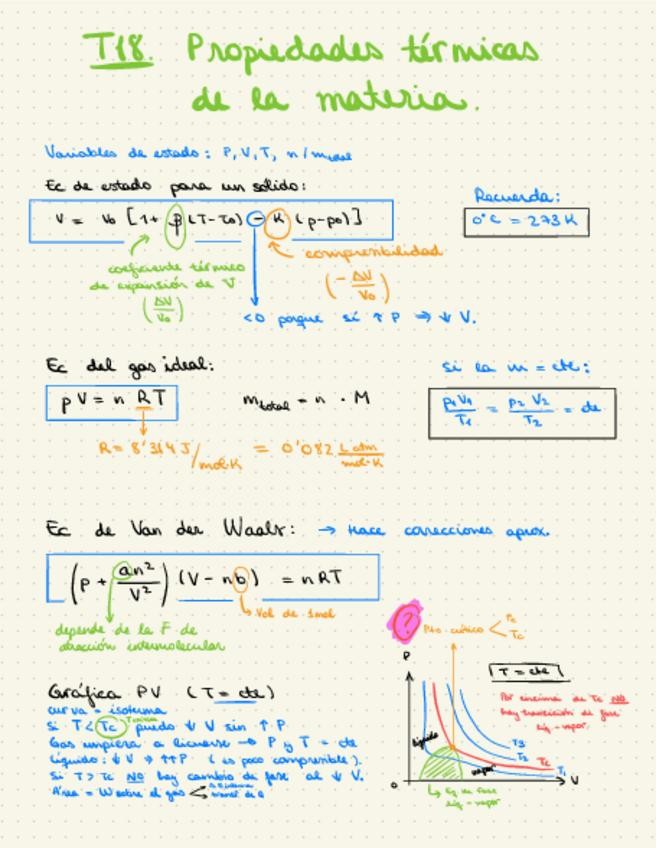 T18. Propiedades térmicas
de la materia.
Variables de estado: P, V, T, n/mtotal
Ec de estado para un sólido:
V = V0 [1+ β (T-T0) - K (p-p0)]
Recuerda:
0°C = 273 K
coeficiente térmico
de expansión de V
(ΔV/V0)
compresibilidad
(-ΔV/V0)
<0 porque si ↑ P ⇒ ↓ V.
Ec del gas ideal:
pV = n RT
mtotal = n · M
R = 8'314 J/mol·K = 0'082 L atm/mol·K
si la m = cte:
p1V1/T1 = p2 V2/T2 = cte
Ec de Van der Waals: → Hace correcciones aprox.
(p + an²/V²) (V - nb) = nRT
depende de la F de
atracción intermolecular
Vol de 1mol
?
Pto. crítico < Pc
Tc
Gráfica PV (T = cte)
curva = isoterma
Si T < Tc puedo ↓ V sin ↑ P
Gas empieza a licuarse → P y T = cte
Líquido: ↓ V → ↑↑P. (es poco compresible).
Si T > Tc NO hay cambio de fase al ↓ V.
Área = W sobre el gas <
P
T = cte
Por encima de Tc NO
hay transición de fase
líq-vapor.
líquido
vapor
T3
T2
Tc
T1
0
V
Eq en fase
líq-vapor